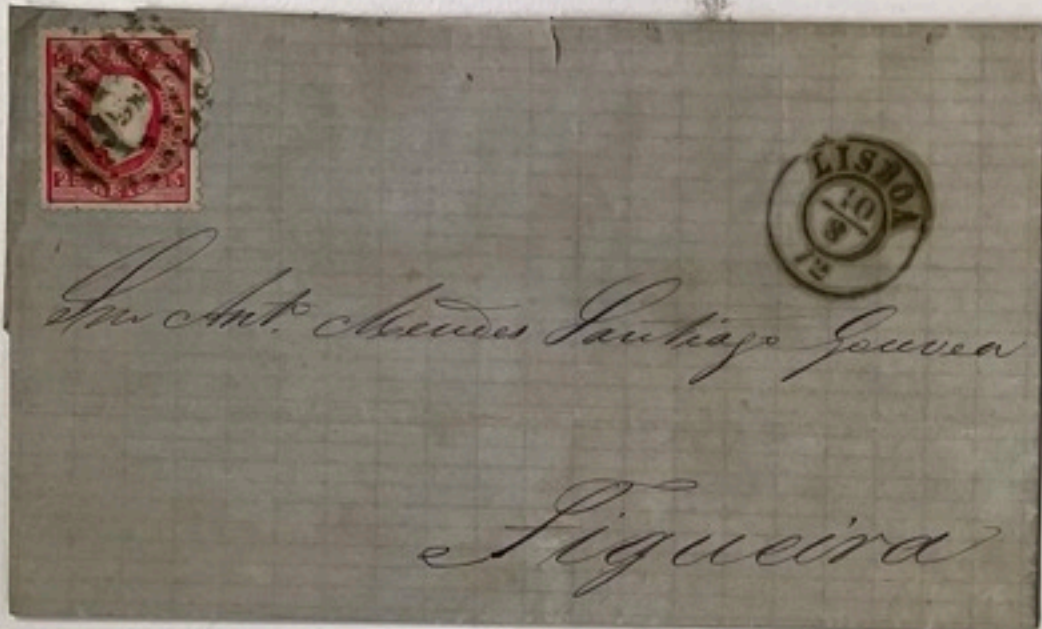 LISBOA
10
8
72
Snr Ant.º Mendes Santiago Gouvea
Figueira